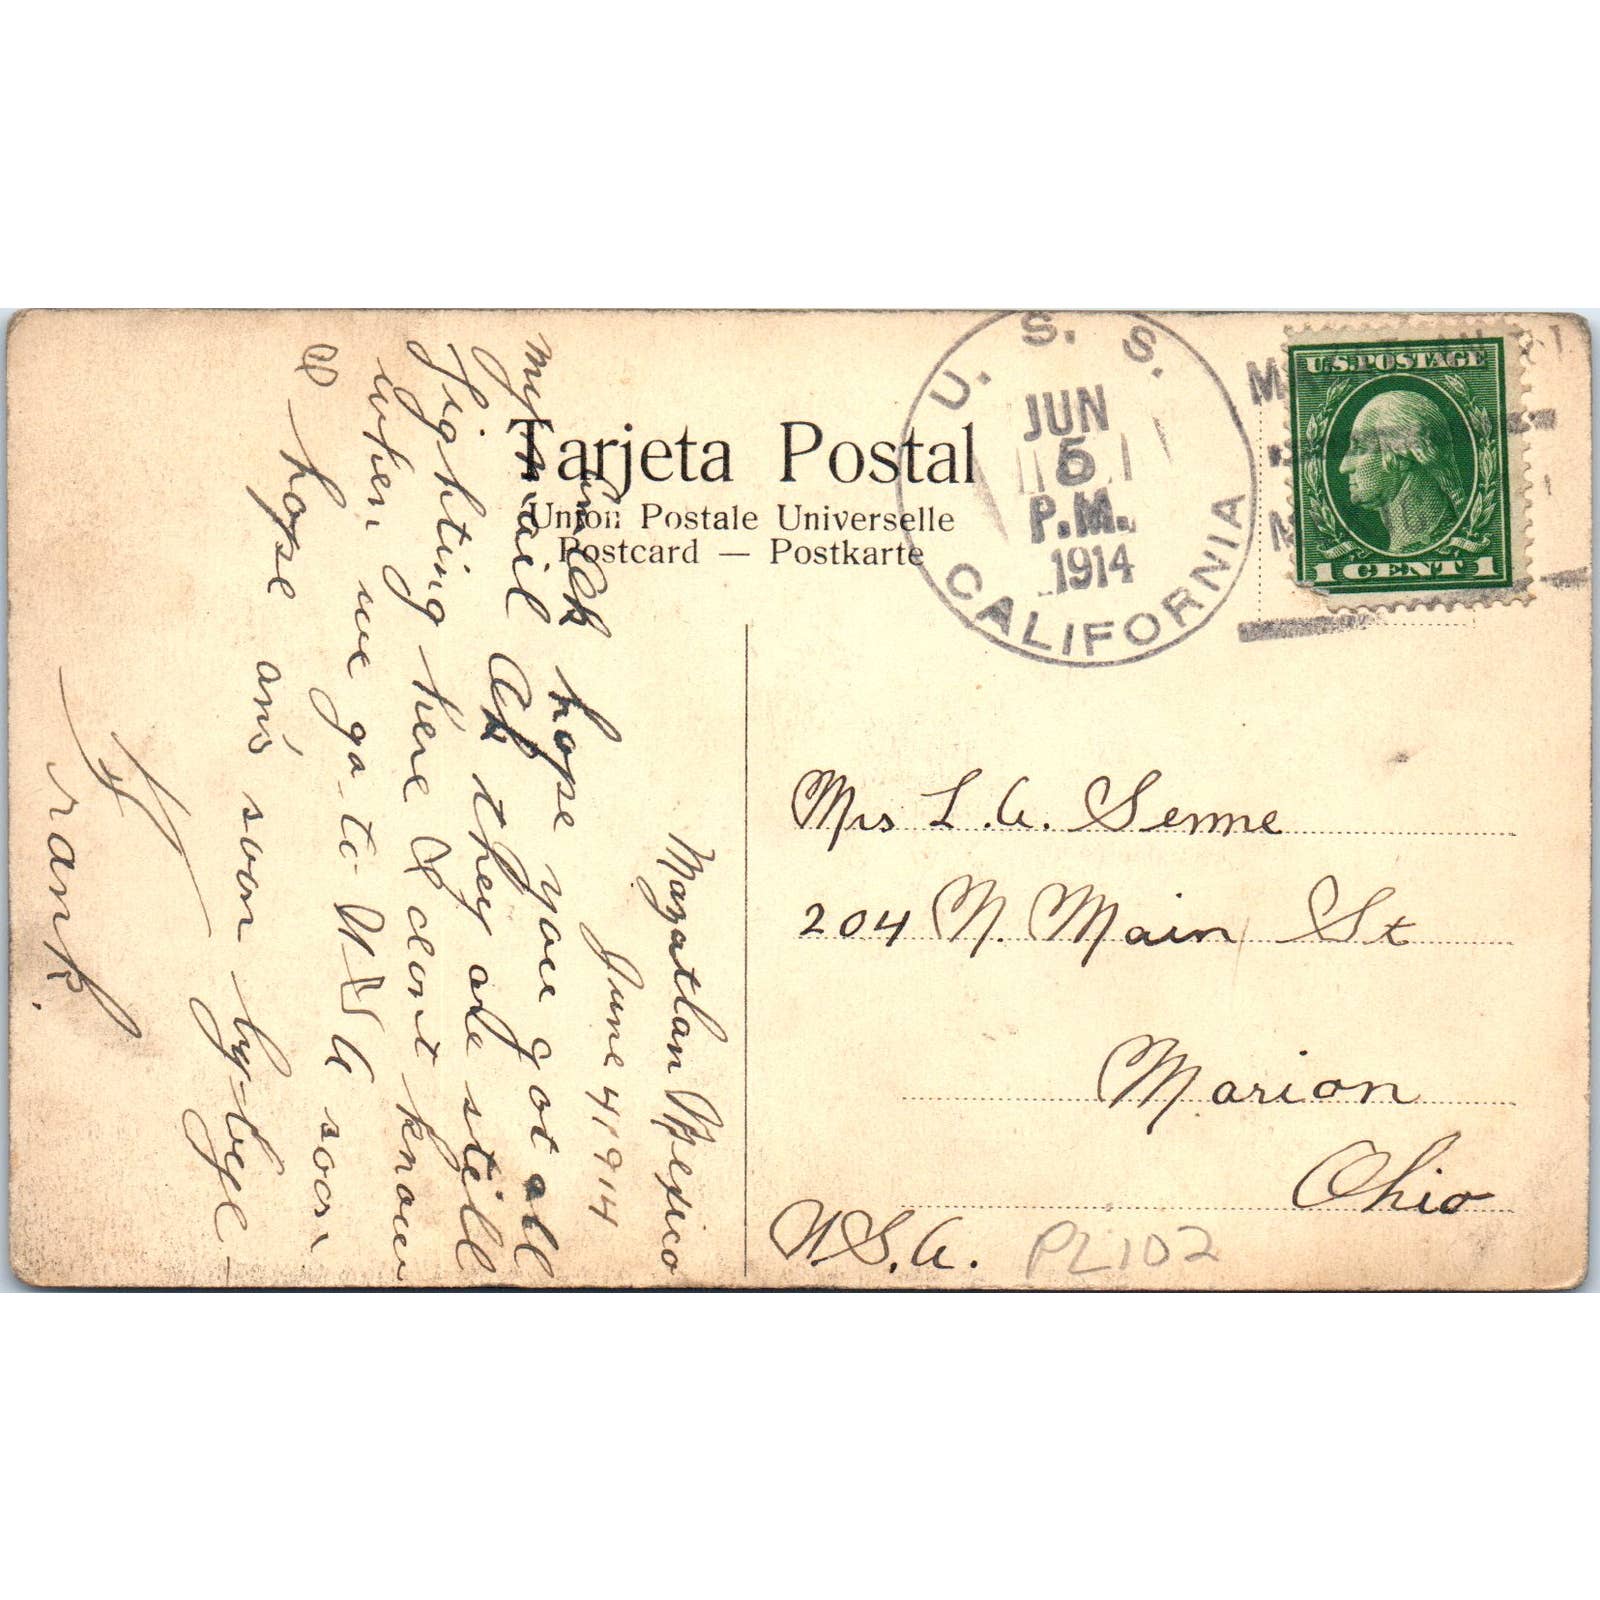 Tarjeta Postal
Union Postale Universelle
Postcard — Postkarte
U. S. S. CALIFORNIA
JUN
5
P.M.
1914
U.S. POSTAGE
1 CENT 1
Mazatlan Mexico
June 4 1914
hope you got all
my mail they are still
fighting here I dont know
when we go to U S A soon
I hope ans soon by-bye
Frank.
Mrs L. A. Senne
204 N. Main St
Marion
Ohio
U.S.A.
PL102